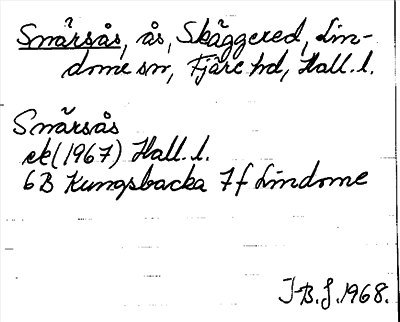 Smårsås, ås, Skäggered, Lin-
dome sn, Fjäre hd, Hall. l.
Smårsås
ek (1967) Hall. l.
6B Kungsbacka 7f Lindome
I B. J. 1968.